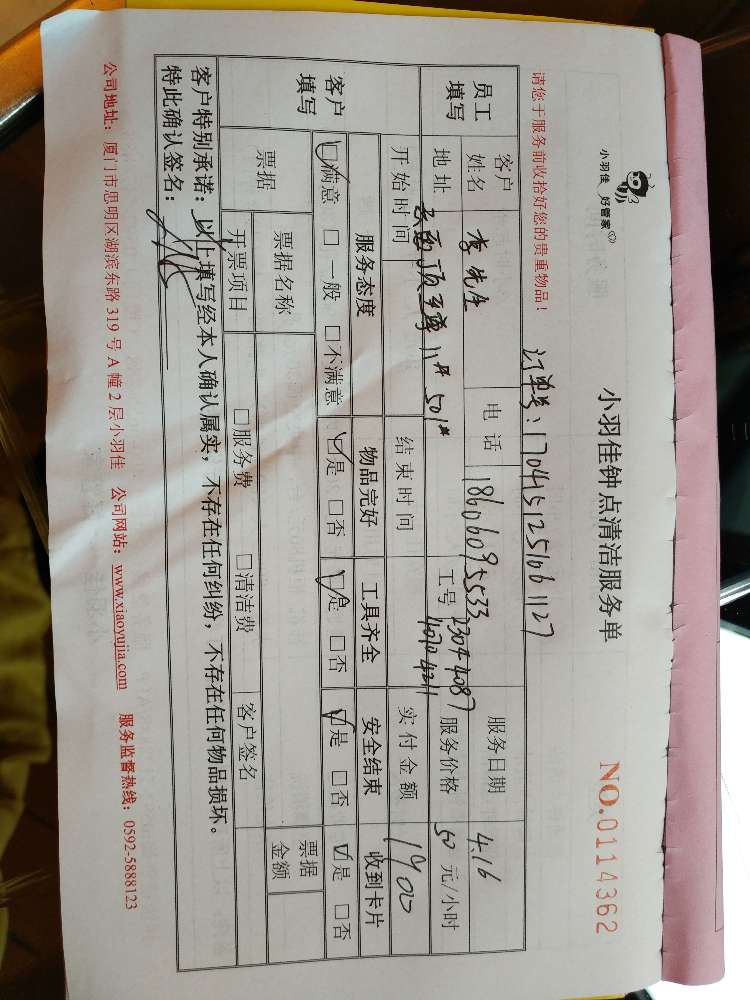 小羽佳 好管家
小羽佳钟点清洁服务单
NO.0114362
请您于服务前收拾好您的贵重物品!
订单号:1704151251061127
员工填写
客户姓名 李先生 电话 18606095533 服务日期 4.16
地址 11# 501# 工号 23044087 110704211 服务价格 50 元/小时
开始时间 结束时间 实付金额
客户填写
服务态度 物品完好 工具齐全 安全结束 收到卡片
☑满意 □一般 □不满意 ☑是 □否 ☑是 □否 ☑是 □否 ☑是 □否
票据 票据名称 票据金额
开票项目 □服务费 □清洁费 客户签名
客户特别承诺:以上填写经本人确认属实,不存在任何纠纷,不存在任何物品损坏。
特此确认签名:
公司地址:厦门市思明区湖滨东路 319 号 A 幢 2 层小羽佳 公司网站:www.xiaoyujia.com 服务监督热线:0592-5888123